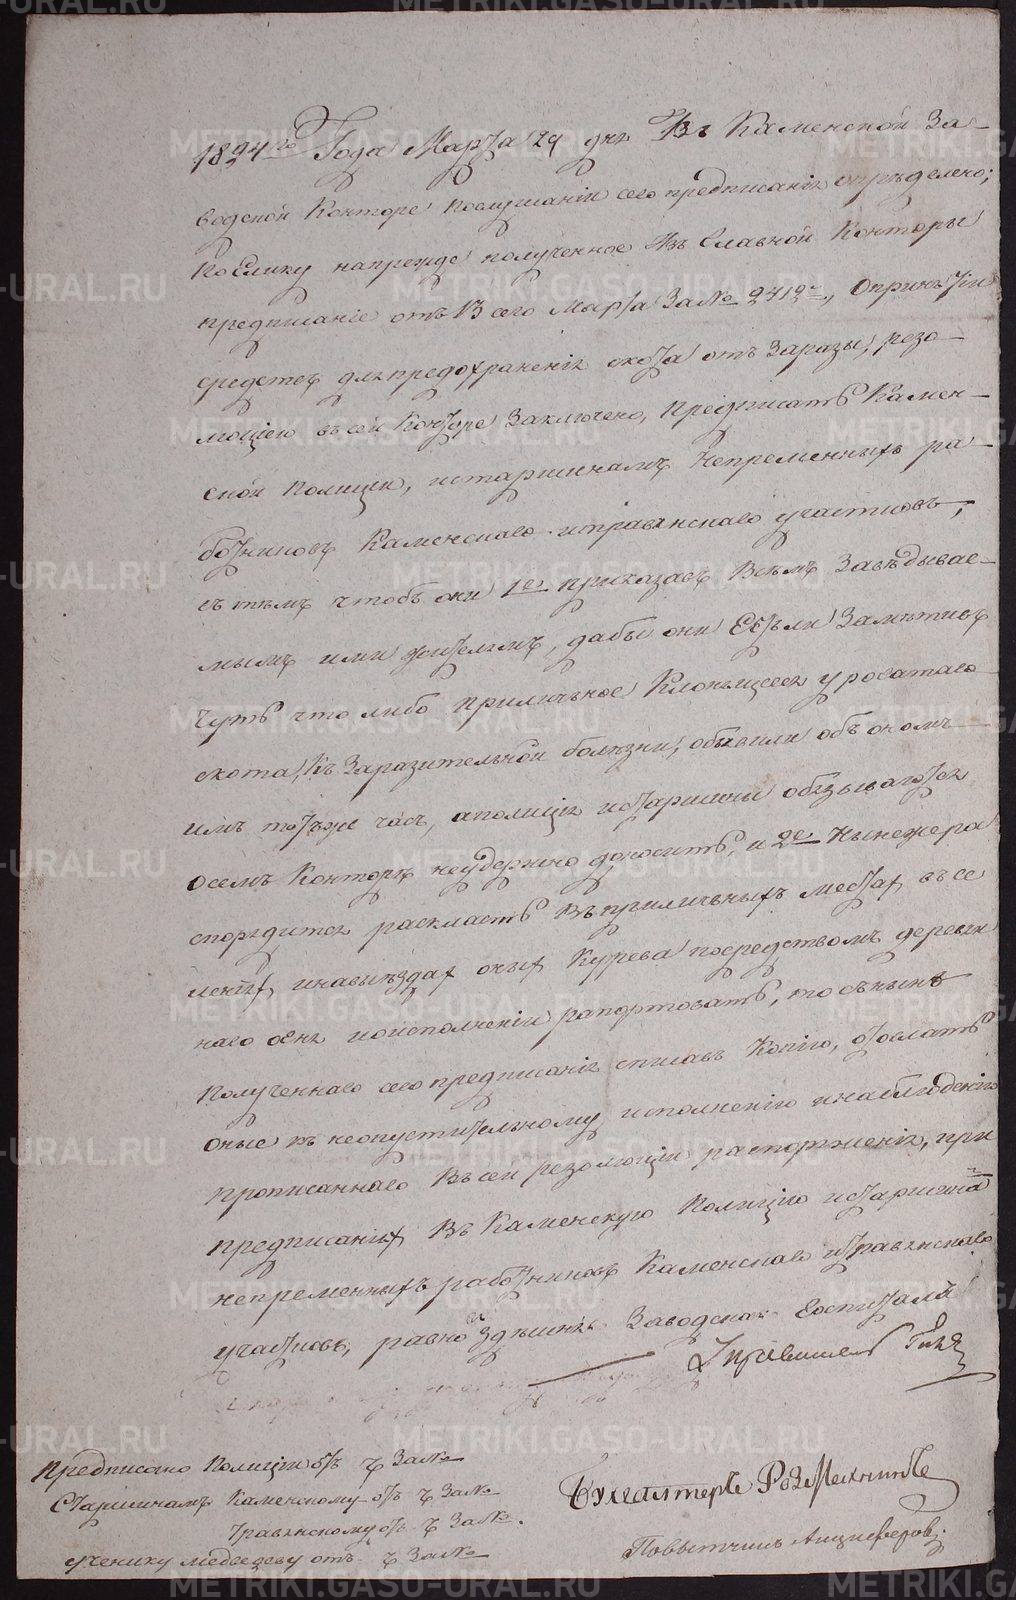 1824го Года Марта 29 дня В Каменской За-
водской Конторе послушании сего предписания определено;
поелику напрежде полученное Изъ Главной Конторы
предписание отъ 13 сего Марта За № 2412м, Опринятии
средствъ для предохранения скота отъ Заразы, резо-
люциею въ сей Конторе Заключено, предписать Камен-
ской полиции, истаршинамъ Непременныхъ ра-
ботниковъ Каменскаго итравянскаго участковъ,
съ темъ чтобъ они 1е приказавъ Всемъ Заведывае-
мымъ ими жителямъ, дабы они Естьли Заметивъ
чуть что либо приличное Клонящееся у рогатаго
скота, къ Заразительной болезни, объявили объ ономъ
имъ тотъже часъ, аполиция истаршины обязываются
осемъ Конторе неудержно доносить, и 2е Ныне же ра
спорядится раскласть Въприличныхъ местах въ се
лениях инавыездах оных Курева посредствомъ деревян
наго огня иоисполнении рапортовать, то съныне
полученнаго сего предписания списавъ Копию, отослать
оные къ неопустительному исполнению инаблюдению
прописаннаго Въсей резолюции распоряжения, при
предписаниях Въ Каменскую Полицию истаршина
непременныхъ работниковъ Каменскаго итравянскаго
участковъ, равно Здешняго Заводскаго Госпиталя
Управитель
Предписано Полиции отъ Ч За №
Старшинамъ Каменскому отъ Ч За №
травянскому отъ Ч За №.
ученику медведеву отъ Ч За №
Бухгалтеръ
Повытчикъ Анциферовъ.
METRIKI.GASO-URAL.RU